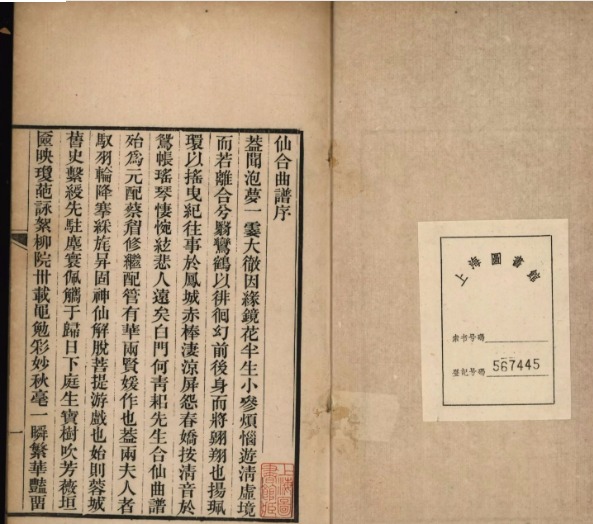 仙合曲譜序
蓋聞泡夢一霎大徹因緣鏡花半生小參煩惱遊清虛境
而若離合兮驂鸞鶴以徘徊幻前後身而將翺翔也揚珮
環以搖曳紀往事於鳳城赤棒淒涼屏怨春嬌按清音於
鴛帳瑤琴悽惋絃悲人遠矣白門何青耜先生合仙曲譜
殆為元配蔡繼修繼配管有華兩賢媛作也蓋兩夫人者
馭羽輪降搴綵旄昇固神仙解脫菩提游戲也始則蓉城
舊史繫綬先駐塵寰佩觿于歸日下庭生寶樹吹芳薇垣
匳映瓊葩詠絮柳院卅載黽勉彩妙秋毫一瞬繁華豔留
一
上海圖書館藏
上海圖書館
索书号碼
登记号碼 567445